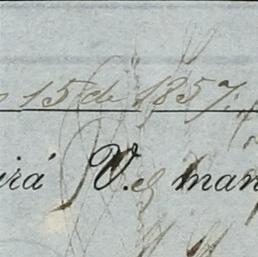 15 de 1857.
irá V. man